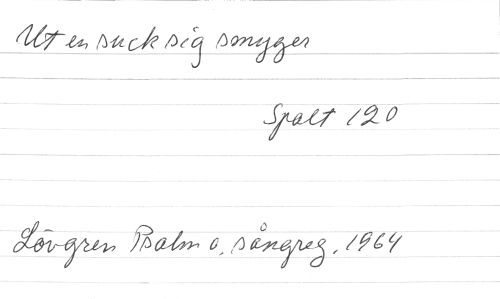 Ut en suck sig smyger
Spalt 120
Lövgren Psalm o. sångreg. 1964